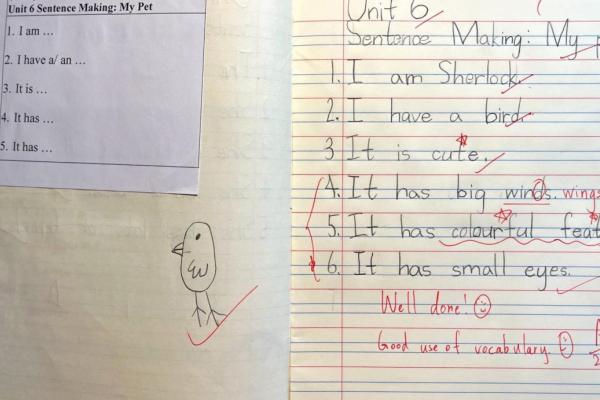 Unit 6 Sentence Making: My Pet
1. I am ...
2. I have a/ an ...
3. It is ...
4. It has ...
5. It has ...
Unit 6
Sentence Making: My
1. I am Sherlock.
2. I have a bird.
3 It is cute.
4. It has big winds. wings
5. It has colourful feat
6. It has small eyes.
Well done!
Good use of vocabulary.